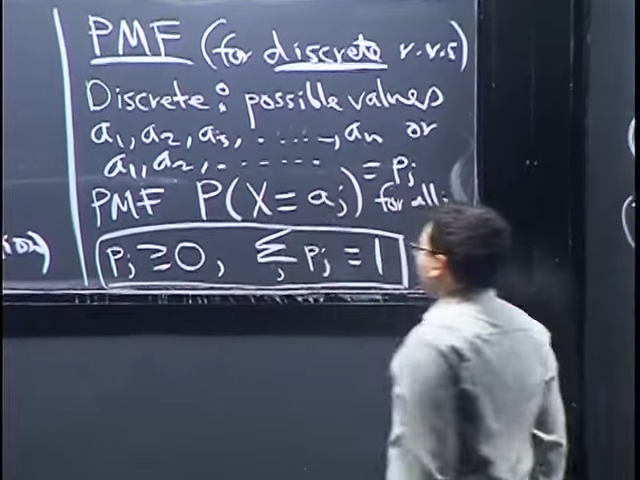 PMF (for discrete r.v.s)
Discrete: possible values
a₁, a₂, a₃, ......, aₙ or
a₁, a₂, ........
PMF P(X = aⱼ) = pⱼ for all
pⱼ ≥ 0, Σⱼ pⱼ = 1